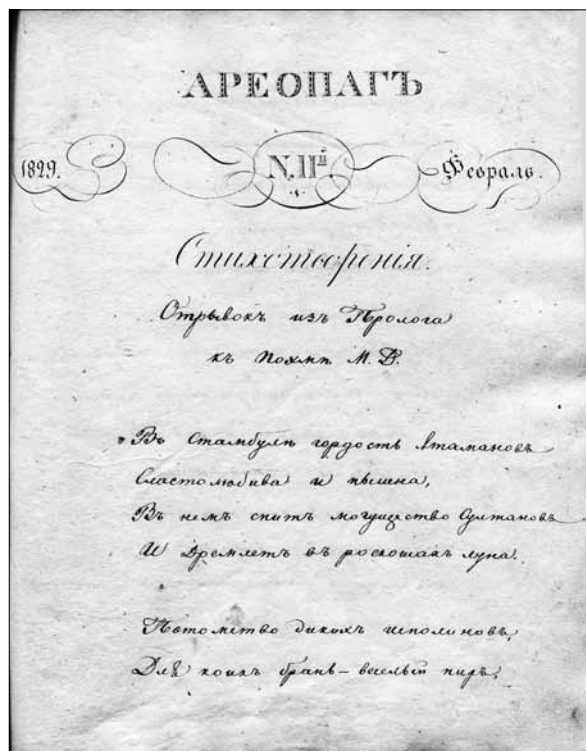 АРЕОПАГЪ
1829. N. IIй Февраль.
Стихотворенія.
Отрывокъ изъ Пролога
къ Поэмѣ М. Д.
Въ Стамбулѣ гордость Атамановъ
Сластолюбива и пышна,
Въ немъ спитъ могущество Султановъ
И дремлетъ въ роскошахъ луна.
Потомство дикихъ исполиновъ,
Для коихъ брань – веселый пиръ,